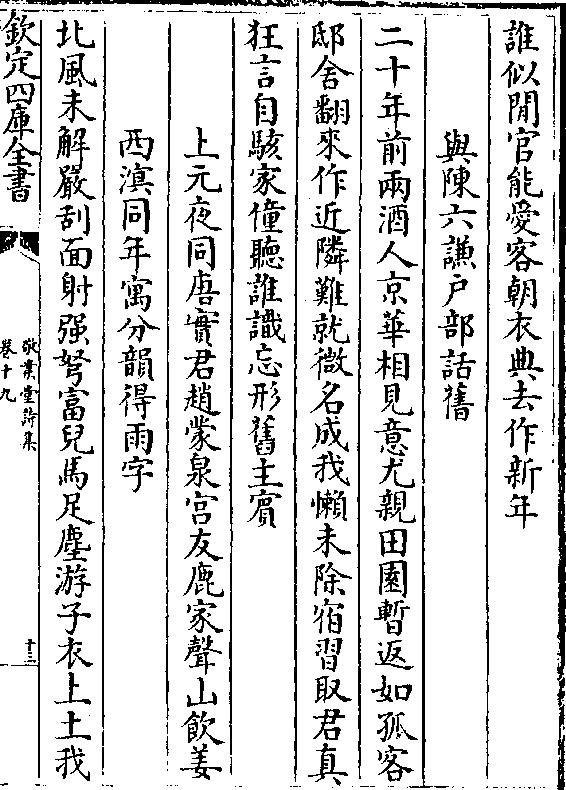 誰似閒官能愛客朝衣典去作新年
與陳六謙户部話舊
二十年前兩酒人京華相見意尤親田園暫返如孤客
邸舍翻來作近隣難就微名成我懶未除宿習取君真
狂言自駭家僮聽誰識忘形舊主賓
上元夜同唐實君趙蒙泉宫友鹿家聲山飲姜
西溟同年寓分韻得雨字
北風未解嚴刮面射强弩富兒馬足塵游子衣上土我
欽定四庫全書
敬業堂詩集
卷十九
十三